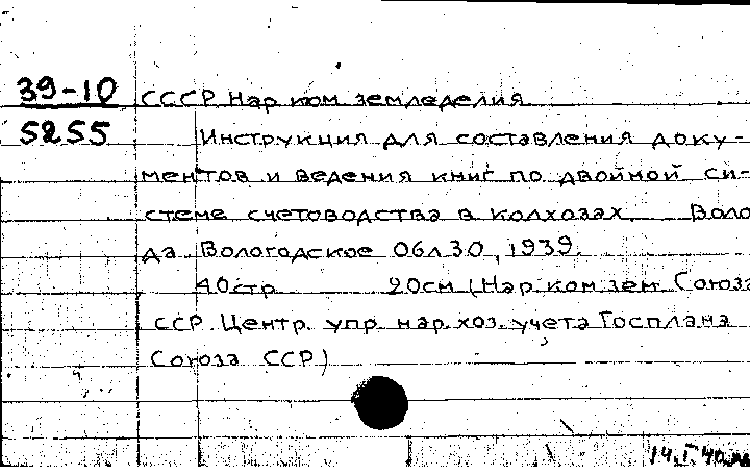 39-10 СССР. Нар. ком. земледелия
5255 Инструкция для составления доку-
ментов и ведения книг по двойной си-
стеме счетоводства в колхозах. Волог
да. Вологодское Обл ЗО, 1939.
40 стр. 20см (Нар. ком. зем. Союза
ССР. Центр. упр. нар. хоз. учета Госплана
Союза ССР)
14.I.40